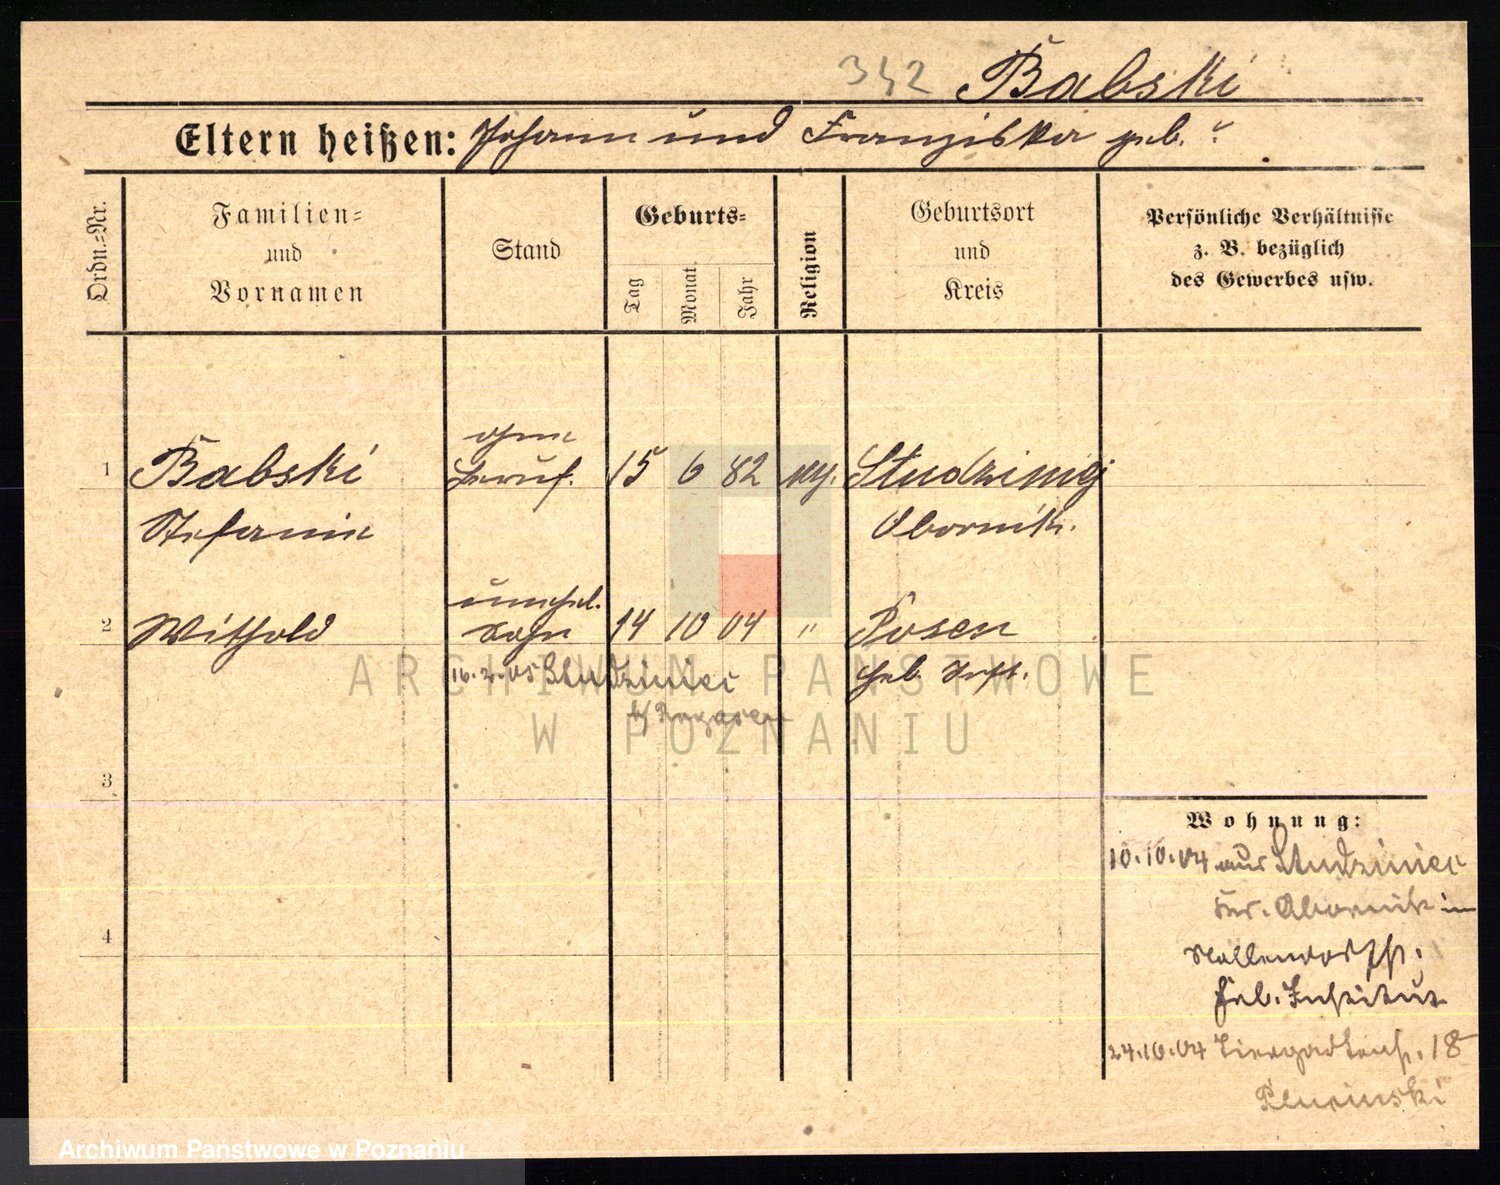 342 Babski
Eltern heißen: Johann und Franziska geb. ?
Ordn.=Nr.
Familien=
und
Vornamen
Stand
Geburts=
Tag
Monat
Jahr
Religion
Geburtsort
und
Kreis
Persönliche Verhältnisse
z. B. bezüglich
des Gewerbes usw.
ohne
1 Babski Beruf. 15 6 82 Studziniec
Stefanie Obornik.
unehel.
2 Withold Sohn 14 10 04 " Posen
16.2.05 Studziniec Heb. Inst.
b/ Rogasen
3
4
Wohnung:
10.10.04 aus Studziniec
Kr. Obornik in
Heb. Institut
24.10.04 Tiergartenst. 18
ARCHIWUM PAŃSTWOWE
W POZNANIU
Archiwum Państwowe w Poznaniu